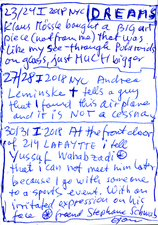 23/24 I 2018 NYC DREAMS
Klaus Mössle bought a BIG art
piece (not from me) that was
like my see-through Polaroids
on glass, just MUCH bigger
27/28 I 2018 NYC Andrea
Leminske & tells a guy
that I found this airplane
and it IS NOT a CESSNA
30/31 I 2018 At the front door
of 214 LAFAYTTE i tell
Yussuf Wahabzadi
that i can not meet him later
because I go with someone
to a sports event. With an
irritated expression on his
face friend Stephane Schul